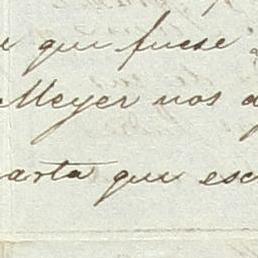 que fuese
Meyer nos a
arta que esc